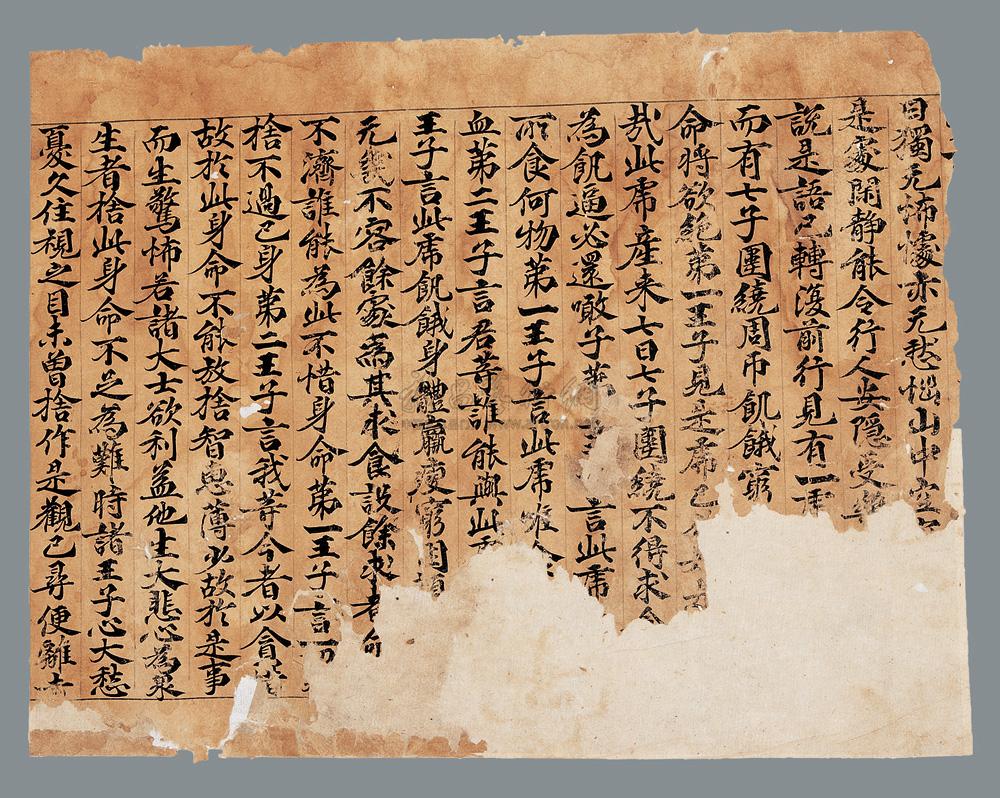 日獨无怖懅亦无愁惱山中空
是處閑靜能令行人安隱受
說是語已轉復前行見有一虎
而有七子圍繞周帀飢餓窮
命將欲絕第一王子見是虎已
哉此虎產來七日七子圍繞不得求食
為飢逼必還噉子第 言此虎
所食何物第一王子言此虎唯食
血第二王子言君等誰能與此
王子言此虎飢餓身體羸瘦窮困頓
无幾不容餘處為其求食設餘求者命
不濟誰能為此不惜身命第一王子言一切
捨不過己身第二王子言我等今者以貪惜
故於此身命不能放捨智惠薄少故於是事
而生驚怖若諸大士欲利益他生大悲心為眾
生者捨此身命不足為難時諸王子心大愁
憂久住視之目未曾捨作是觀已尋便離去